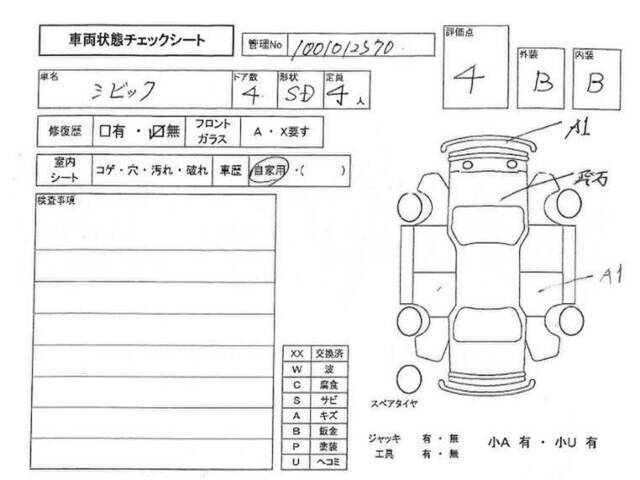 車両状態チェックシート
管理No 1001012570
評価点 4
外装 B
内装 B
車名 シビック
ドア数 4
形状 SD
定員 4人
修復歴 □有 ・ ☑無
フロントガラス A ・ X要す
室内シート コゲ・穴・汚れ・破れ
車歴 自家用 ・( )
検査事項
A1
飛石
A1
XX 交換済
W 波
C 腐食
S サビ
A キズ
B 鈑金
P 塗装
U ヘコミ
スペアタイヤ
ジャッキ 有 ・ 無
工具 有 ・ 無
小A 有 ・ 小U 有